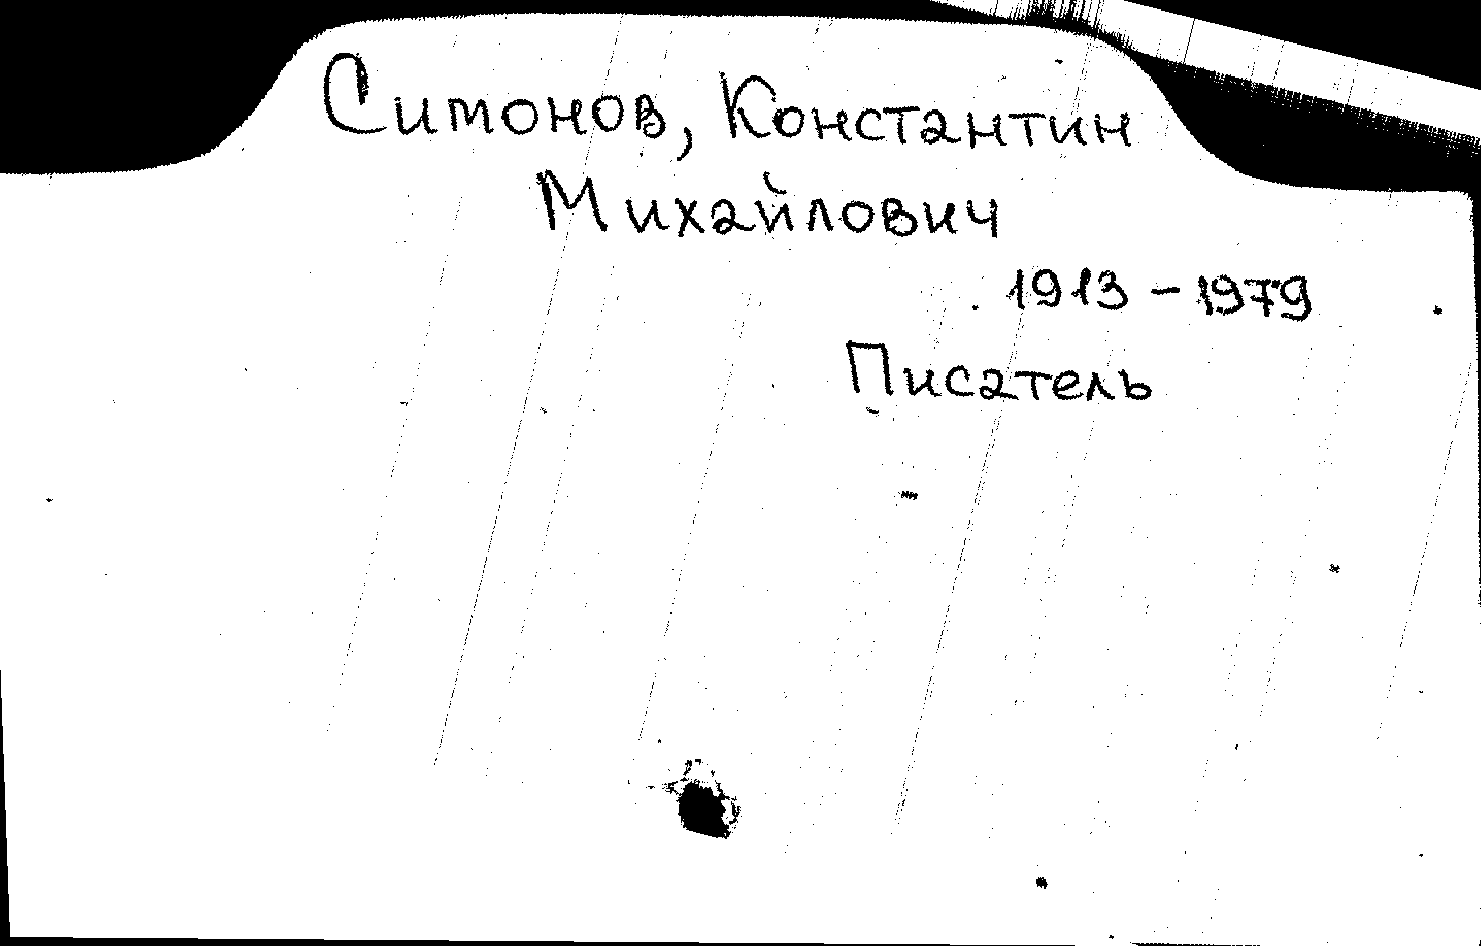 Симонов, Константин
Михайлович
1913 - 1979
Писатель